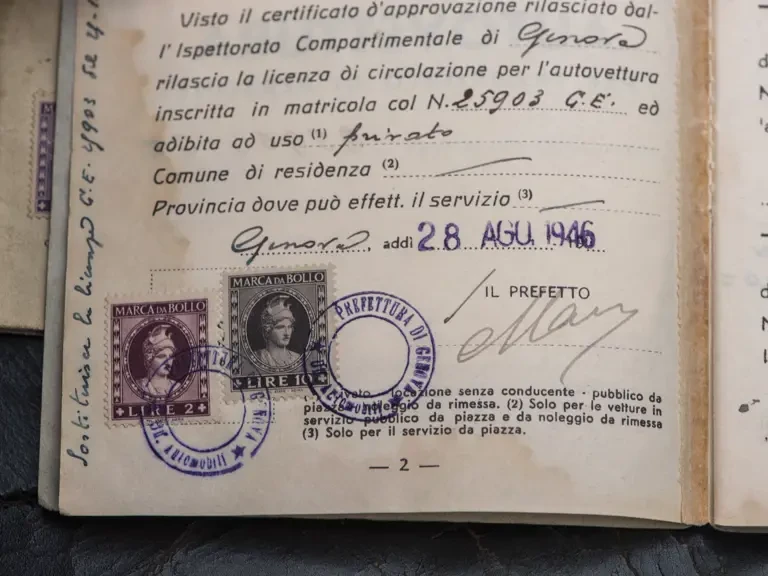 Visto il certificato d'approvazione rilasciato dal-
l'Ispettorato Compartimentale di Genova
rilascia la licenza di circolazione per l'autovettura
inscritta in matricola col N. 25903 G.E. ed
adibita ad uso (1) privato
Comune di residenza (2)
Provincia dove può effett. il servizio (3)
Genova, addì 28 AGU. 1946
IL PREFETTO
MARCA DA BOLLO
LIRE 2
MARCA DA BOLLO
LIRE 10
PREFETTURA DI GENOVA
Automobili
GENOVA
Automobili
locazione senza conducente - pubblico da
piazza noleggio da rimessa. (2) Solo per le vetture in
servizio pubblico da piazza e da noleggio da rimessa
(3) Solo per il servizio da piazza.
— 2 —
Sostituisce la licenza G.E.